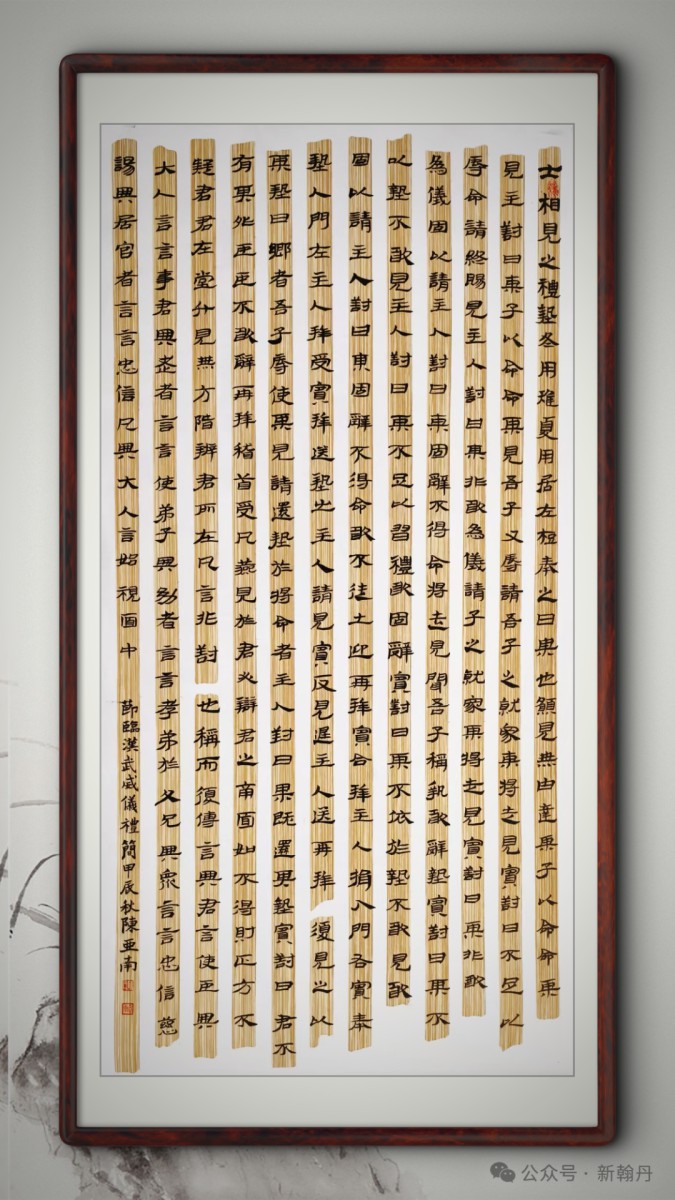 士相見之禮墊冬用雉夏用居左梪奉之曰果也願見無由達果子以命命果
見主對曰果子以命命果見吾子又辱請吾子之就家果將走見賓對曰不足以
辱命請終賜見主人對曰果非敢為儀請子之就家果將走見賓對曰果非敢
為儀固以請主人對曰果固辭不得命將走見聞吾子稱執敢辭墊賓對曰果不
以墊不敢見主人對曰果不足以習禮敢固辭賓對曰果不依於墊不敢見敢
固以請主人對曰果固辭不得命敢不從土迎再拜賓合拜主人揖入門右賓奉
墊入門左主人拜受賓拜送墊出主人請見賓反見退主人送再拜 復見之以
果墊曰鄉者吾子辱使果見請還墊於將命者主人對曰果既還果墊賓對曰君不
有果非臣臣不敢辭再拜稽首受凡燕見於君必辯君之南面如不得財正方不
疑君君在堂升見無方階辨君所在凡言非對 也稱而復傳言與君言使臣與
大人言言事君與老者言言使弟子與幼者言言孝弟於父兄與眾言言忠信慈
諹與居官者言言忠信凡與大人言始視面中
節臨漢武威儀禮簡甲辰秋陳亞南
公众号·新翰丹